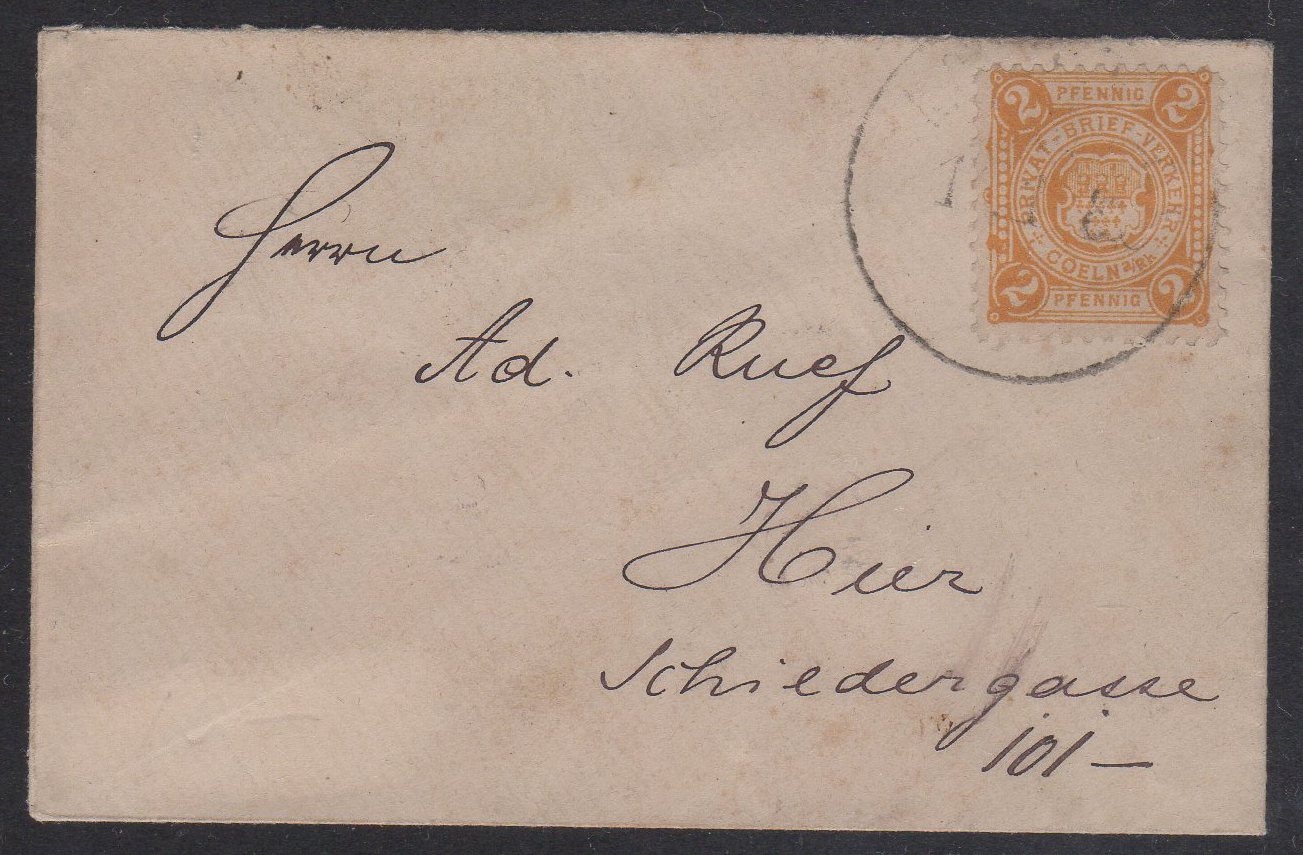 2 PFENNIG 2
PRIVAT-BRIEF-VERKEHR
COELN a/Rh.
2 PFENNIG 2
Herrn
Ad. Ruef
Hier
Schiedergasse
101-